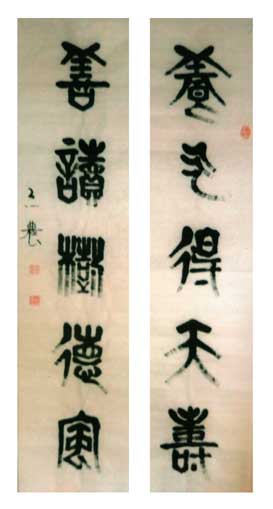 養气得天壽
善讀樹德風